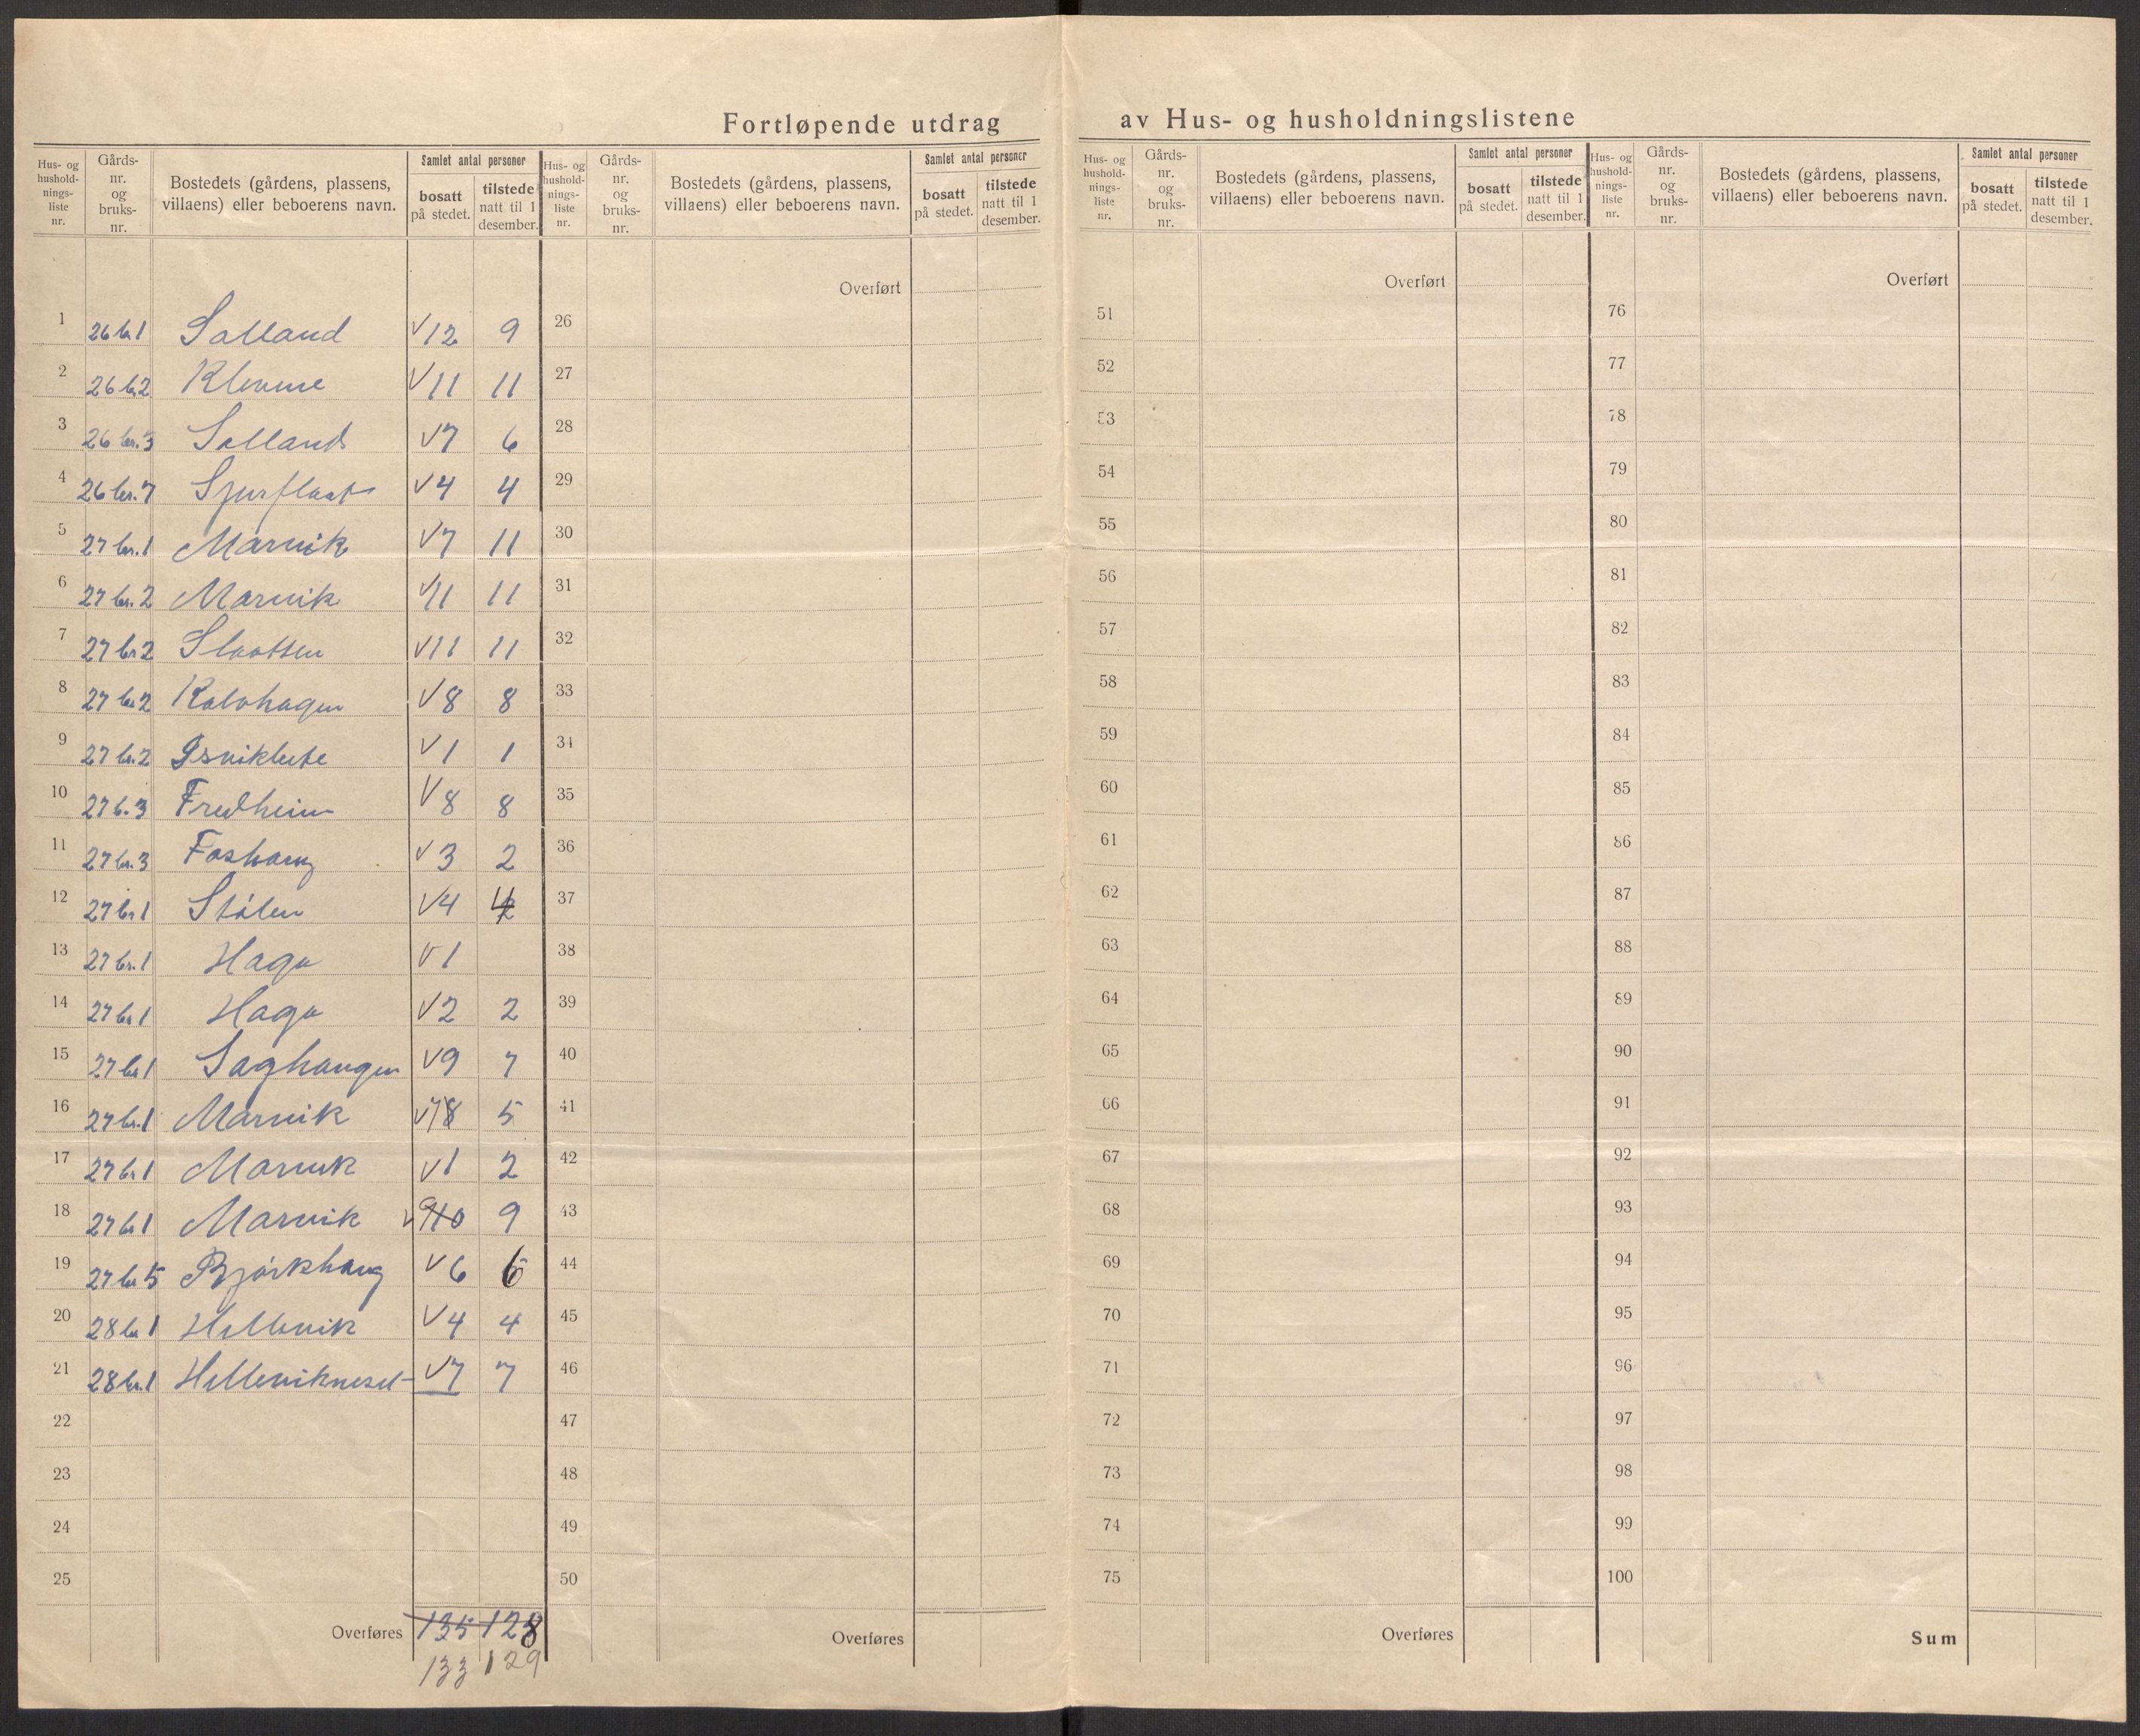 Fortløpende utdrag av Hus- og husholdningslistene
Hus- og husholdnings-liste nr. Gårds-nr. og bruks-nr. Bostedets (gårdens, plassens, villaens) eller beboerens navn. Samlet antal personer bosatt på stedet. tilstede natt til 1 desember.
Hus- og husholdnings-liste nr. Gårds-nr. og bruks-nr. Bostedets (gårdens, plassens, villaens) eller beboerens navn. Samlet antal personer bosatt på stedet. tilstede natt til 1 desember.
Hus- og husholdnings-liste nr. Gårds-nr. og bruks-nr. Bostedets (gårdens, plassens, villaens) eller beboerens navn. Samlet antal personer bosatt på stedet. tilstede natt til 1 desember.
Hus- og husholdnings-liste nr. Gårds-nr. og bruks-nr. Bostedets (gårdens, plassens, villaens) eller beboerens navn. Samlet antal personer bosatt på stedet. tilstede natt til 1 desember.
Overført Overført Overført
1 26 br 1 Salland V 12 9 26 51 76
2 26 br 2 V 11 11 27 52 77
3 26 br. 3 Salland V 7 6 28 53 78
4 26 br. 7 V 4 4 29 54 79
5 27 br. 1 Marvik V 7 11 30 55 80
6 27 br. 2 Marvik V 11 11 31 56 81
7 27 br 2 Slaatten V 11 11 32 57 82
8 27 br 2 Kalvhagen V 8 8 33 58 83
9 27 br. 2 V 1 1 34 59 84
10 27 b. 3 Fredheim V 8 8 35 60 85
11 27 br. 3 Foshaug V 3 2 36 61 86
12 27 br 1 Stålen V 4 4 37 62 87
13 27 br. 1 Haga V 1 38 63 88
14 27 br 1 Haga V 2 2 39 64 89
15 27 br 1 Saghaugen V 9 7 40 65 90
16 27 br. 1 Marvik V 7 8 5 41 66 91
17 27 br 1 Marvik V 1 2 42 67 92
18 27 br 1 Marvik V 9 10 9 43 68 93
19 27 br 5 Bjørkhaug V 6 6 44 69 94
20 28 br 1 Hillevik V 4 4 45 70 95
21 28 br. 1 Hillevikneset V 7 7 46 71 96
22 47 72 97
23 48 73 98
24 49 74 99
25 50 75 100
Overføres 135 128 Overføres Overføres Sum
133 129